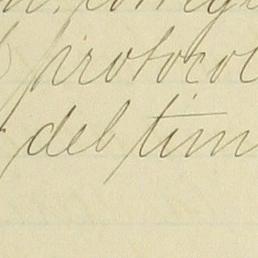 protocol
del tim